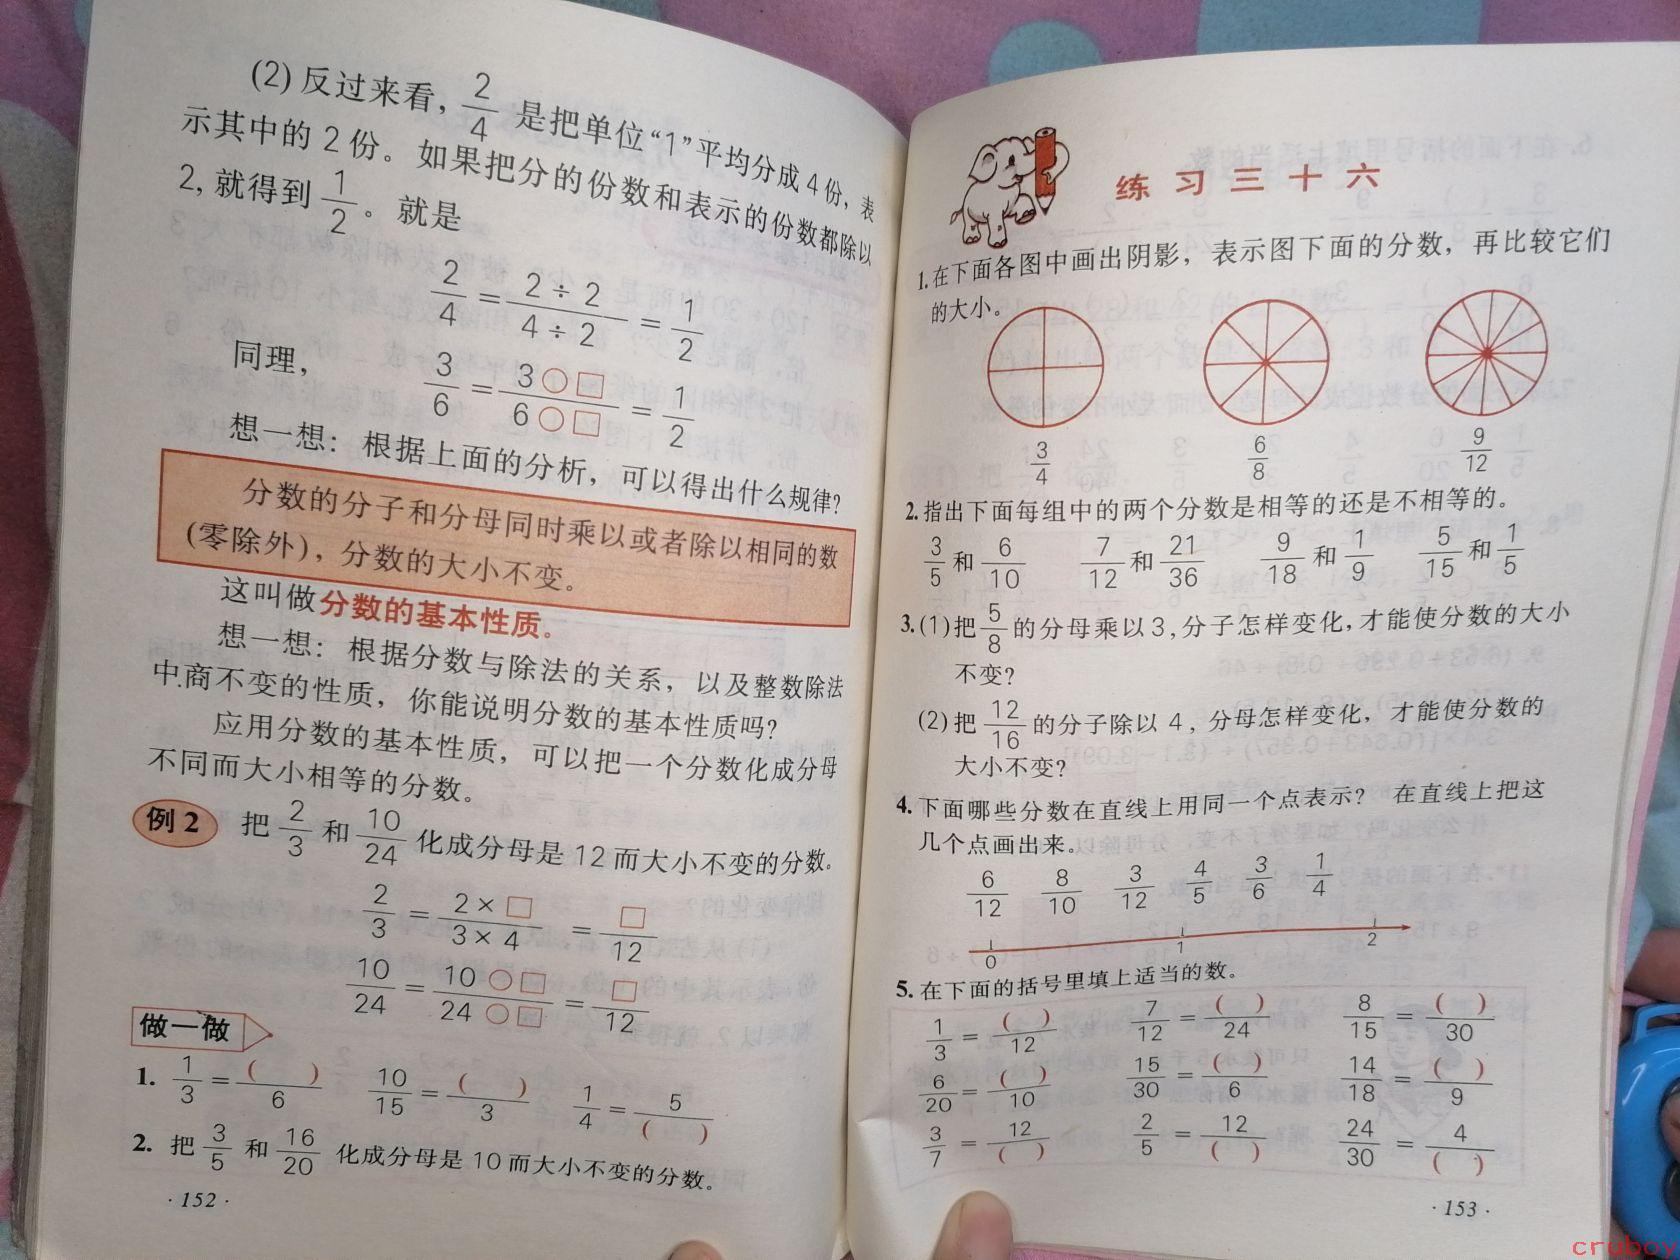 (2) 反过来看, 2/4 是把单位“1”平均分成4份, 表
示其中的2份。如果把分的份数和表示的份数都除以
2, 就得到 1/2。就是
2/4 = 2÷2/4÷2 = 1/2
同理, 3/6 = 3○□/6○□ = 1/2
想一想: 根据上面的分析, 可以得出什么规律?
分数的分子和分母同时乘以或者除以相同的数
(零除外), 分数的大小不变。
这叫做分数的基本性质。
想一想: 根据分数与除法的关系, 以及整数除法
中商不变的性质, 你能说明分数的基本性质吗?
应用分数的基本性质, 可以把一个分数化成分母
不同而大小相等的分数。
例2 把 2/3 和 10/24 化成分母是12而大小不变的分数。
2/3 = 2×□/3×4 = □/12
10/24 = 10○□/24○□ = □/12
做一做
1. 1/3 = ( )/6 10/15 = ( )/3 1/4 = 5/( )
2. 把 3/5 和 16/20 化成分母是10而大小不变的分数。
·152·
练习三十六
1. 在下面各图中画出阴影, 表示图下面的分数, 再比较它们
的大小。
3/4 6/8 9/12
2. 指出下面每组中的两个分数是相等的还是不相等的。
3/5 和 6/10 7/12 和 21/36 9/18 和 1/9 5/15 和 1/5
3. (1) 把 5/8 的分母乘以3, 分子怎样变化, 才能使分数的大小
不变?
(2) 把 12/16 的分子除以4, 分母怎样变化, 才能使分数的
大小不变?
4. 下面哪些分数在直线上用同一个点表示? 在直线上把这
几个点画出来。
6/12 8/10 3/12 4/5 3/6 1/4
0 1 2
5. 在下面的括号里填上适当的数。
1/3 = ( )/12 7/12 = ( )/24 8/15 = ( )/30
6/20 = ( )/10 15/30 = ( )/6 14/18 = ( )/9
3/7 = 12/( ) 2/5 = 12/( ) 24/30 = 4/( )
·153·
cruboy